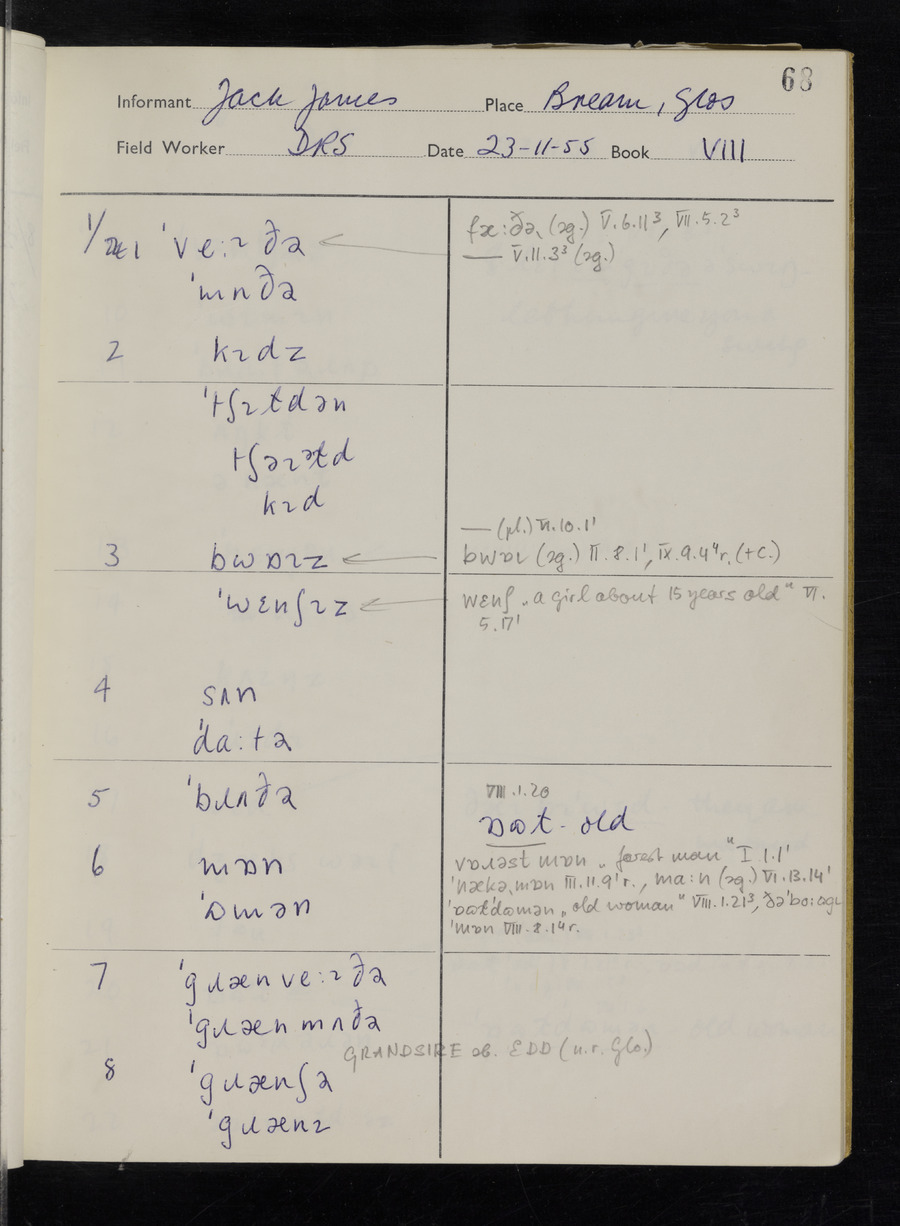 68
Informant Jack James Place Bream, Glos
Field Worker DRS Date 23-11-55 Book VIII
1/ 'veːɪðə̢ fæːðə̢ (sg.) V.6.11³, VII.5.2³
— V.11.3³ (sg.)
'mʌðə̢
2 kɪdz
'tʃɪɫdən
kɪd
— (pl.) VI.10.1'
3 bwɒɪz bwɒɪ (sg.) II.8.1', IX.9.4"r. (+c.)
'wɛnʃɪz wɛnʃ „a girl about 15 years old" VI.
5.17'
4 sʌn
'daːtə̢
5 'bɹʌðə̢ VIII.1.20
ɒʊɫ - old
6 mɒn vɒɹəst mɒn „forest man" I.1.1'
'nækə̢mɒn III.11.9'r., maːn (sg.) VI.13.14'
'ʊmən 'ɒʊɫdʊmən „old woman" VIII.1.21³,
'mɒn VIII.8.14r.
7 'gɹænveːɪðə̢
'gɹænmʌðə̢
GRANDSIRE ob. EDD (n.r. Glo.)
8 'gɹænʃə̢
'gɹænɪ